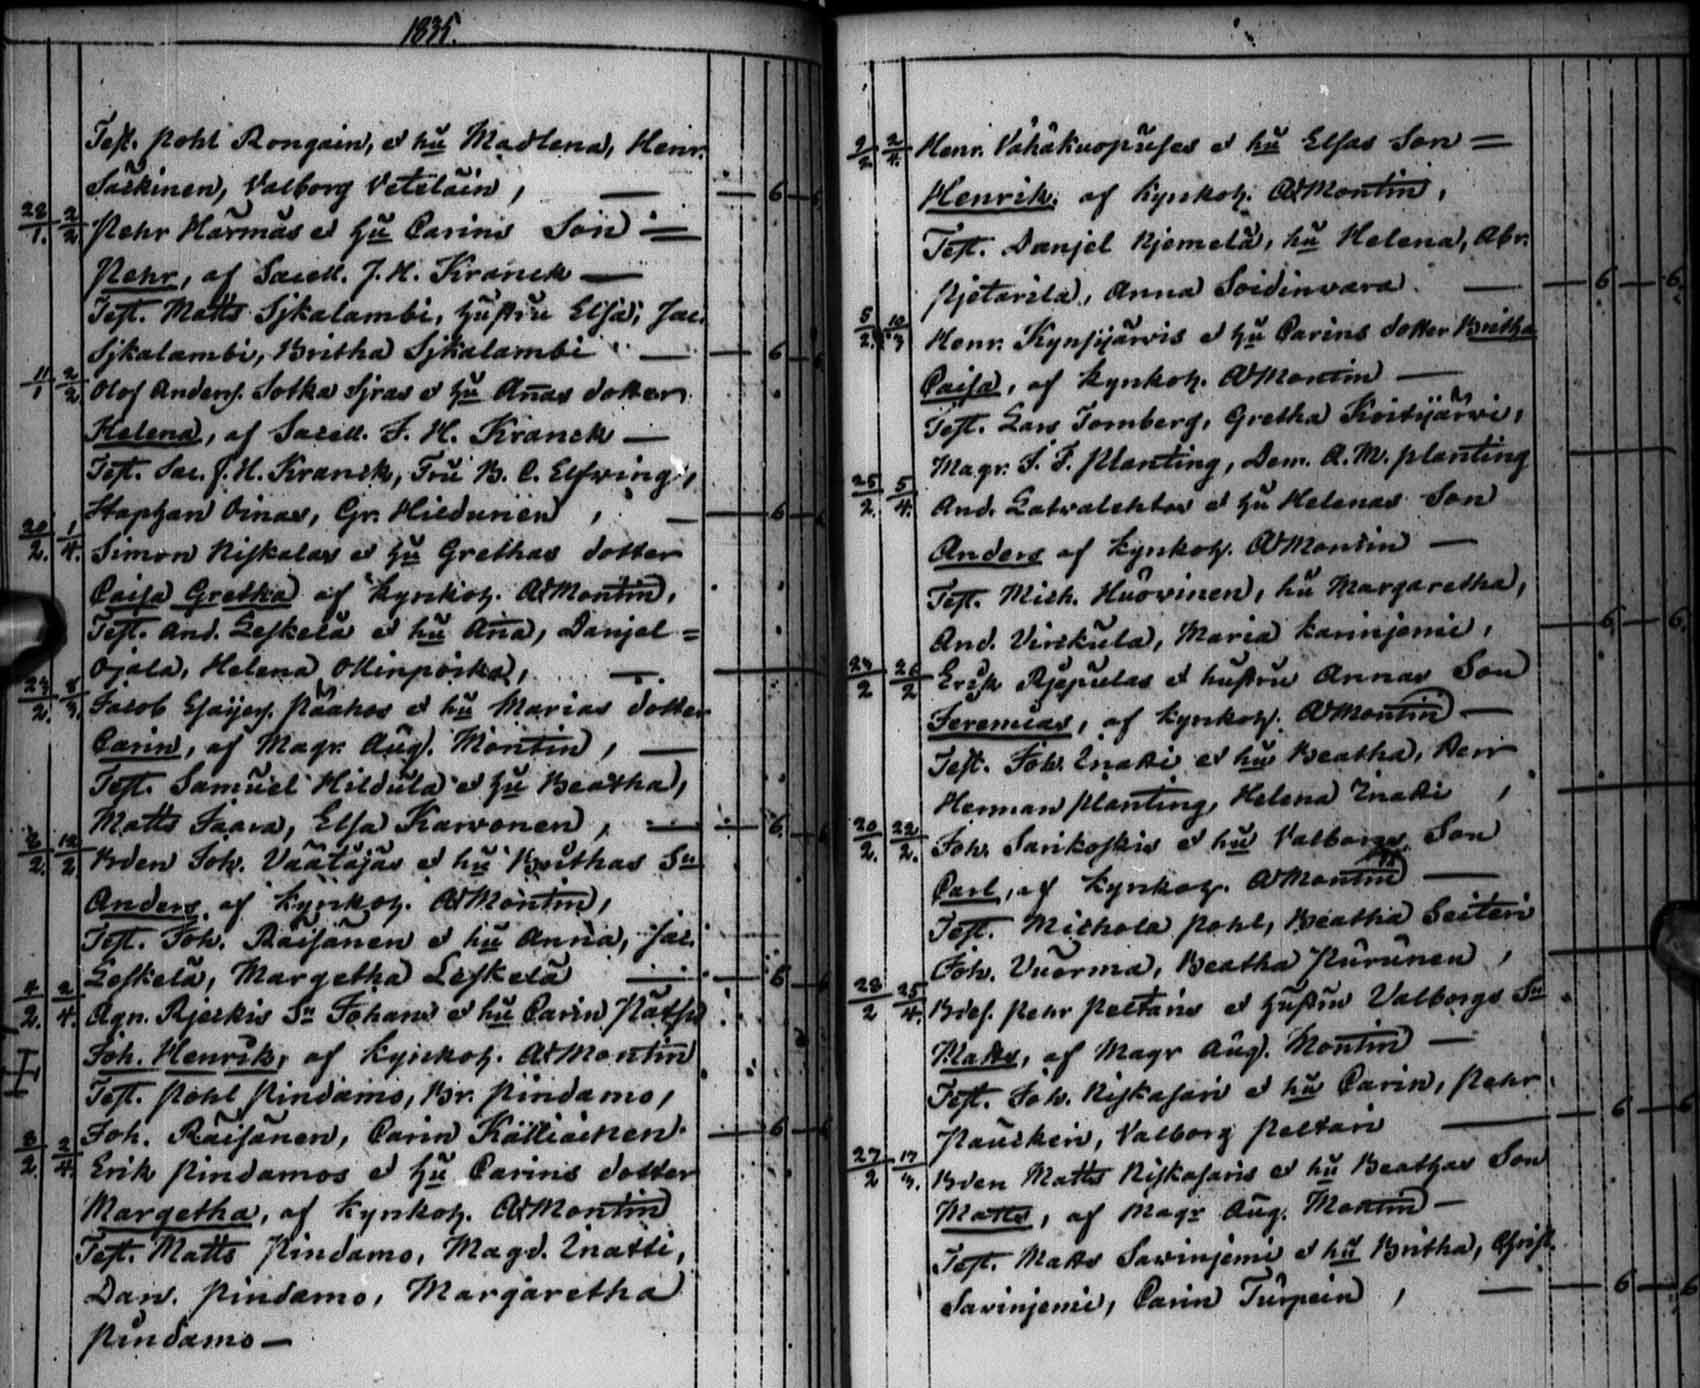 1835.
Test. Pohl Rongain, et hu Madlena, Henr.
Säikinen, Valborg Veteläin, — — 6 —
28/1. 2/2 Pehr Härmäs et hu Carins Son =
Pehr, af Sacell. J. H. Kranck —
Test. Matts Sjkalambi, hustru Elsa, Jac.
Sjkalambi, Britha Sjkalambi — — 6
11/1 2/2 Olof Anders. Sotka Sjras et hu Anas dotter
Helena, af Sacell. J. H. Kranck —
Test. Sac. J. H. Kranck, Fru B. C. Elfving,
Staphan Oinas, Gr. Hildunen, — — 6 —
20/2. 1/4. Simon Niskalas et hu Grethas dotter
Caisa Gretha af Kyrkoh. A Montin,
Test. And. Leskelä et hu Ana, Danjel =
Ojala, Helena Ollinpoika, —
24/2. Jacob Esaijes. Pääkos et hu Marias dotter
Carin, af Magr. Aug. Montin, —
Test. Samuel Hildula et hu Beatha,
Matts Jaara, Elsa Karvonen, — — 6 —
2. 12/2 Bden Joh. Väätäjäs et hu Brithas Sn
Anders, af Kyrkoh. A Montin,
Test. Joh. Räisänen et hu Anna, Jac.
Leskelä, Margetha Leskelä — — 6 —
4/2. 2/4. Agn. Rjeckis Sn Johans et hu Carin
Joh. Henrik, af Kyrkoh. A Montin
Test. Pohl Pindamo, Br. Pindamo,
Joh. Räisänen, Carin Källiäinen. — 6 —
2. 2/4 Erik Pindamos et hu Carins dotter
Margetha, af Kyrkoh. A Montin
Test. Matts Pindamo, Magd. Inatti,
Dan. Pindamo, Margaretha
Pindamo —
2/2 2/4. Henr. Vähäkuopuses et hu Elsas Son =
Henrik. af Kyrkoh. A Montin,
Test. Danjel Njemelä, hu Helena, Abr.
Pjetarila, Anna Soidinvara. — — 6 — 6.
5/2. 10/3 Henr. Kynsijärvis et hu Carins dotter Britha
Caisa, af Kyrkoh. A Montin —
Test. Lars Tomberg, Gretha Koitijärvi,
Magr. J. F. Planting, Dem. A. M. Planting
25/2. 5/4. And. Latvalehtos et hu Helenas Son
Anders af Kyrkoh. A Montin —
Test. Mich. Huovinen, hu Margaretha,
And. Virckula, Maria Karinjemi, — 6 — 6.
24/2 26/2 Erik Rjepulas et hustru Annas Son
Jeremias, af Kyrkoh. A Montin —
Test. Joh. Inatti et hu Beatha, Herr
Herman Planting, Helena Inatti,
20/2. 22/2. Joh. Sarikoskis et hu Valborgs Son
Carl, af Kyrkoh. A Montin —
Test. Michola Pohl, Beatha Seiteri
Joh. Vuorma, Beatha Purunen,
28/2 25/4. Bdes. Pehr Peltaris et hustru Valborgs Sn
Matts, af Magr Aug. Montin —
Test. Joh. Niskasari et hu Carin, Pehr
Pausken, Valborg Peltari — 6 — 6
27/2 17/3. Bden Matts Niskasaris et hu Beathas Son
Matts, af Magr Aug. Montin —
Test. Matts Savinjemi et hu Britha, Christ.
Savinjemi, Carin Turpein, — — 6 — 6